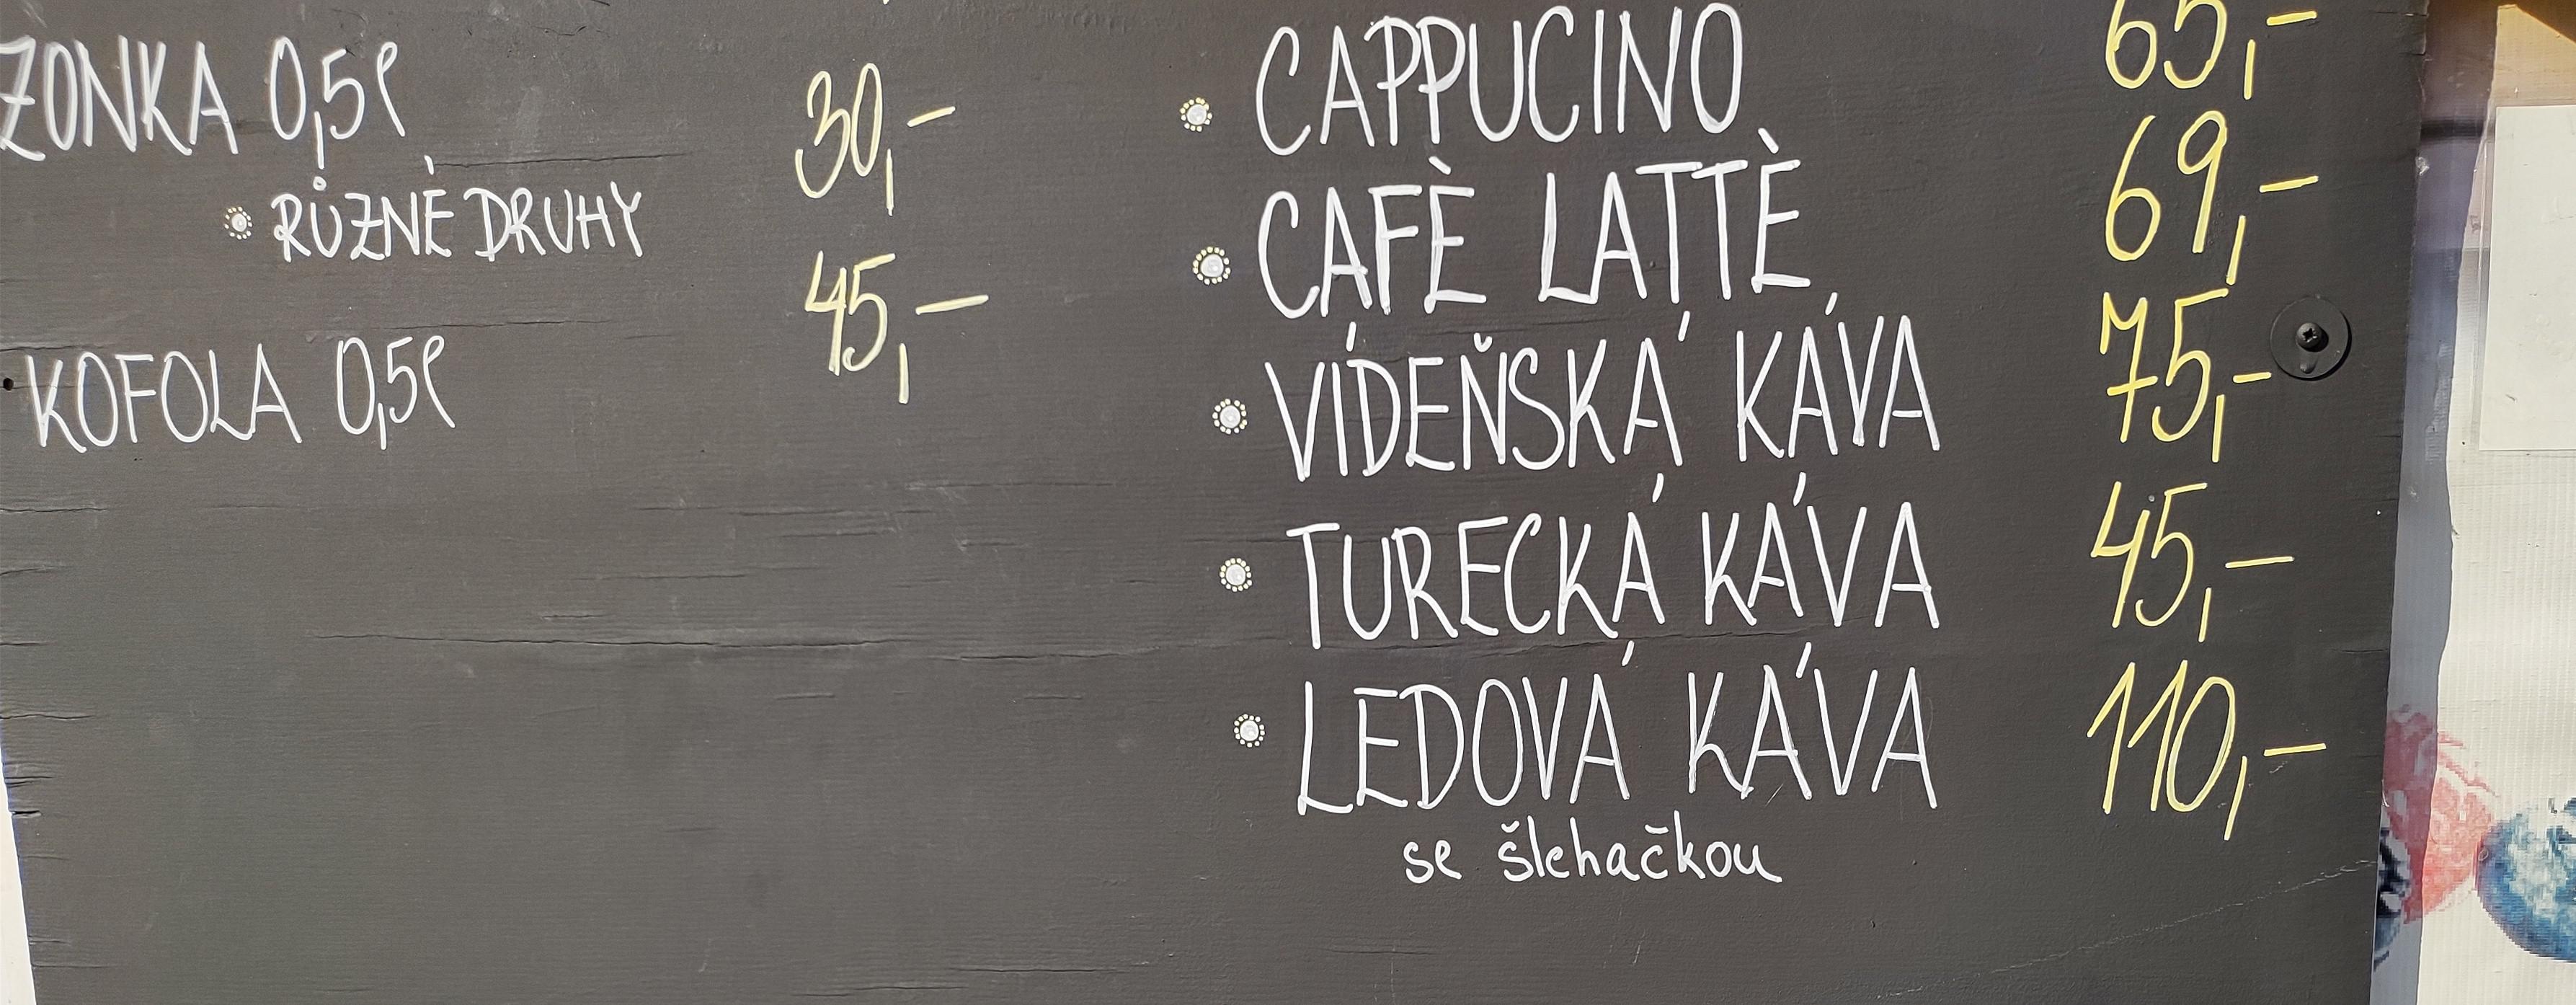 ZONKA 0,5l 30,-
RŮZNÉ DRUHY
KOFOLA 0,5l 45,-
CAPPUCINO 65,-
CAFÈ LATTÈ 69,-
VÍDEŇSKÁ KÁVA 75,-
TURECKÁ KÁVA 45,-
LEDOVÁ KÁVA 110,-
se šlehačkou